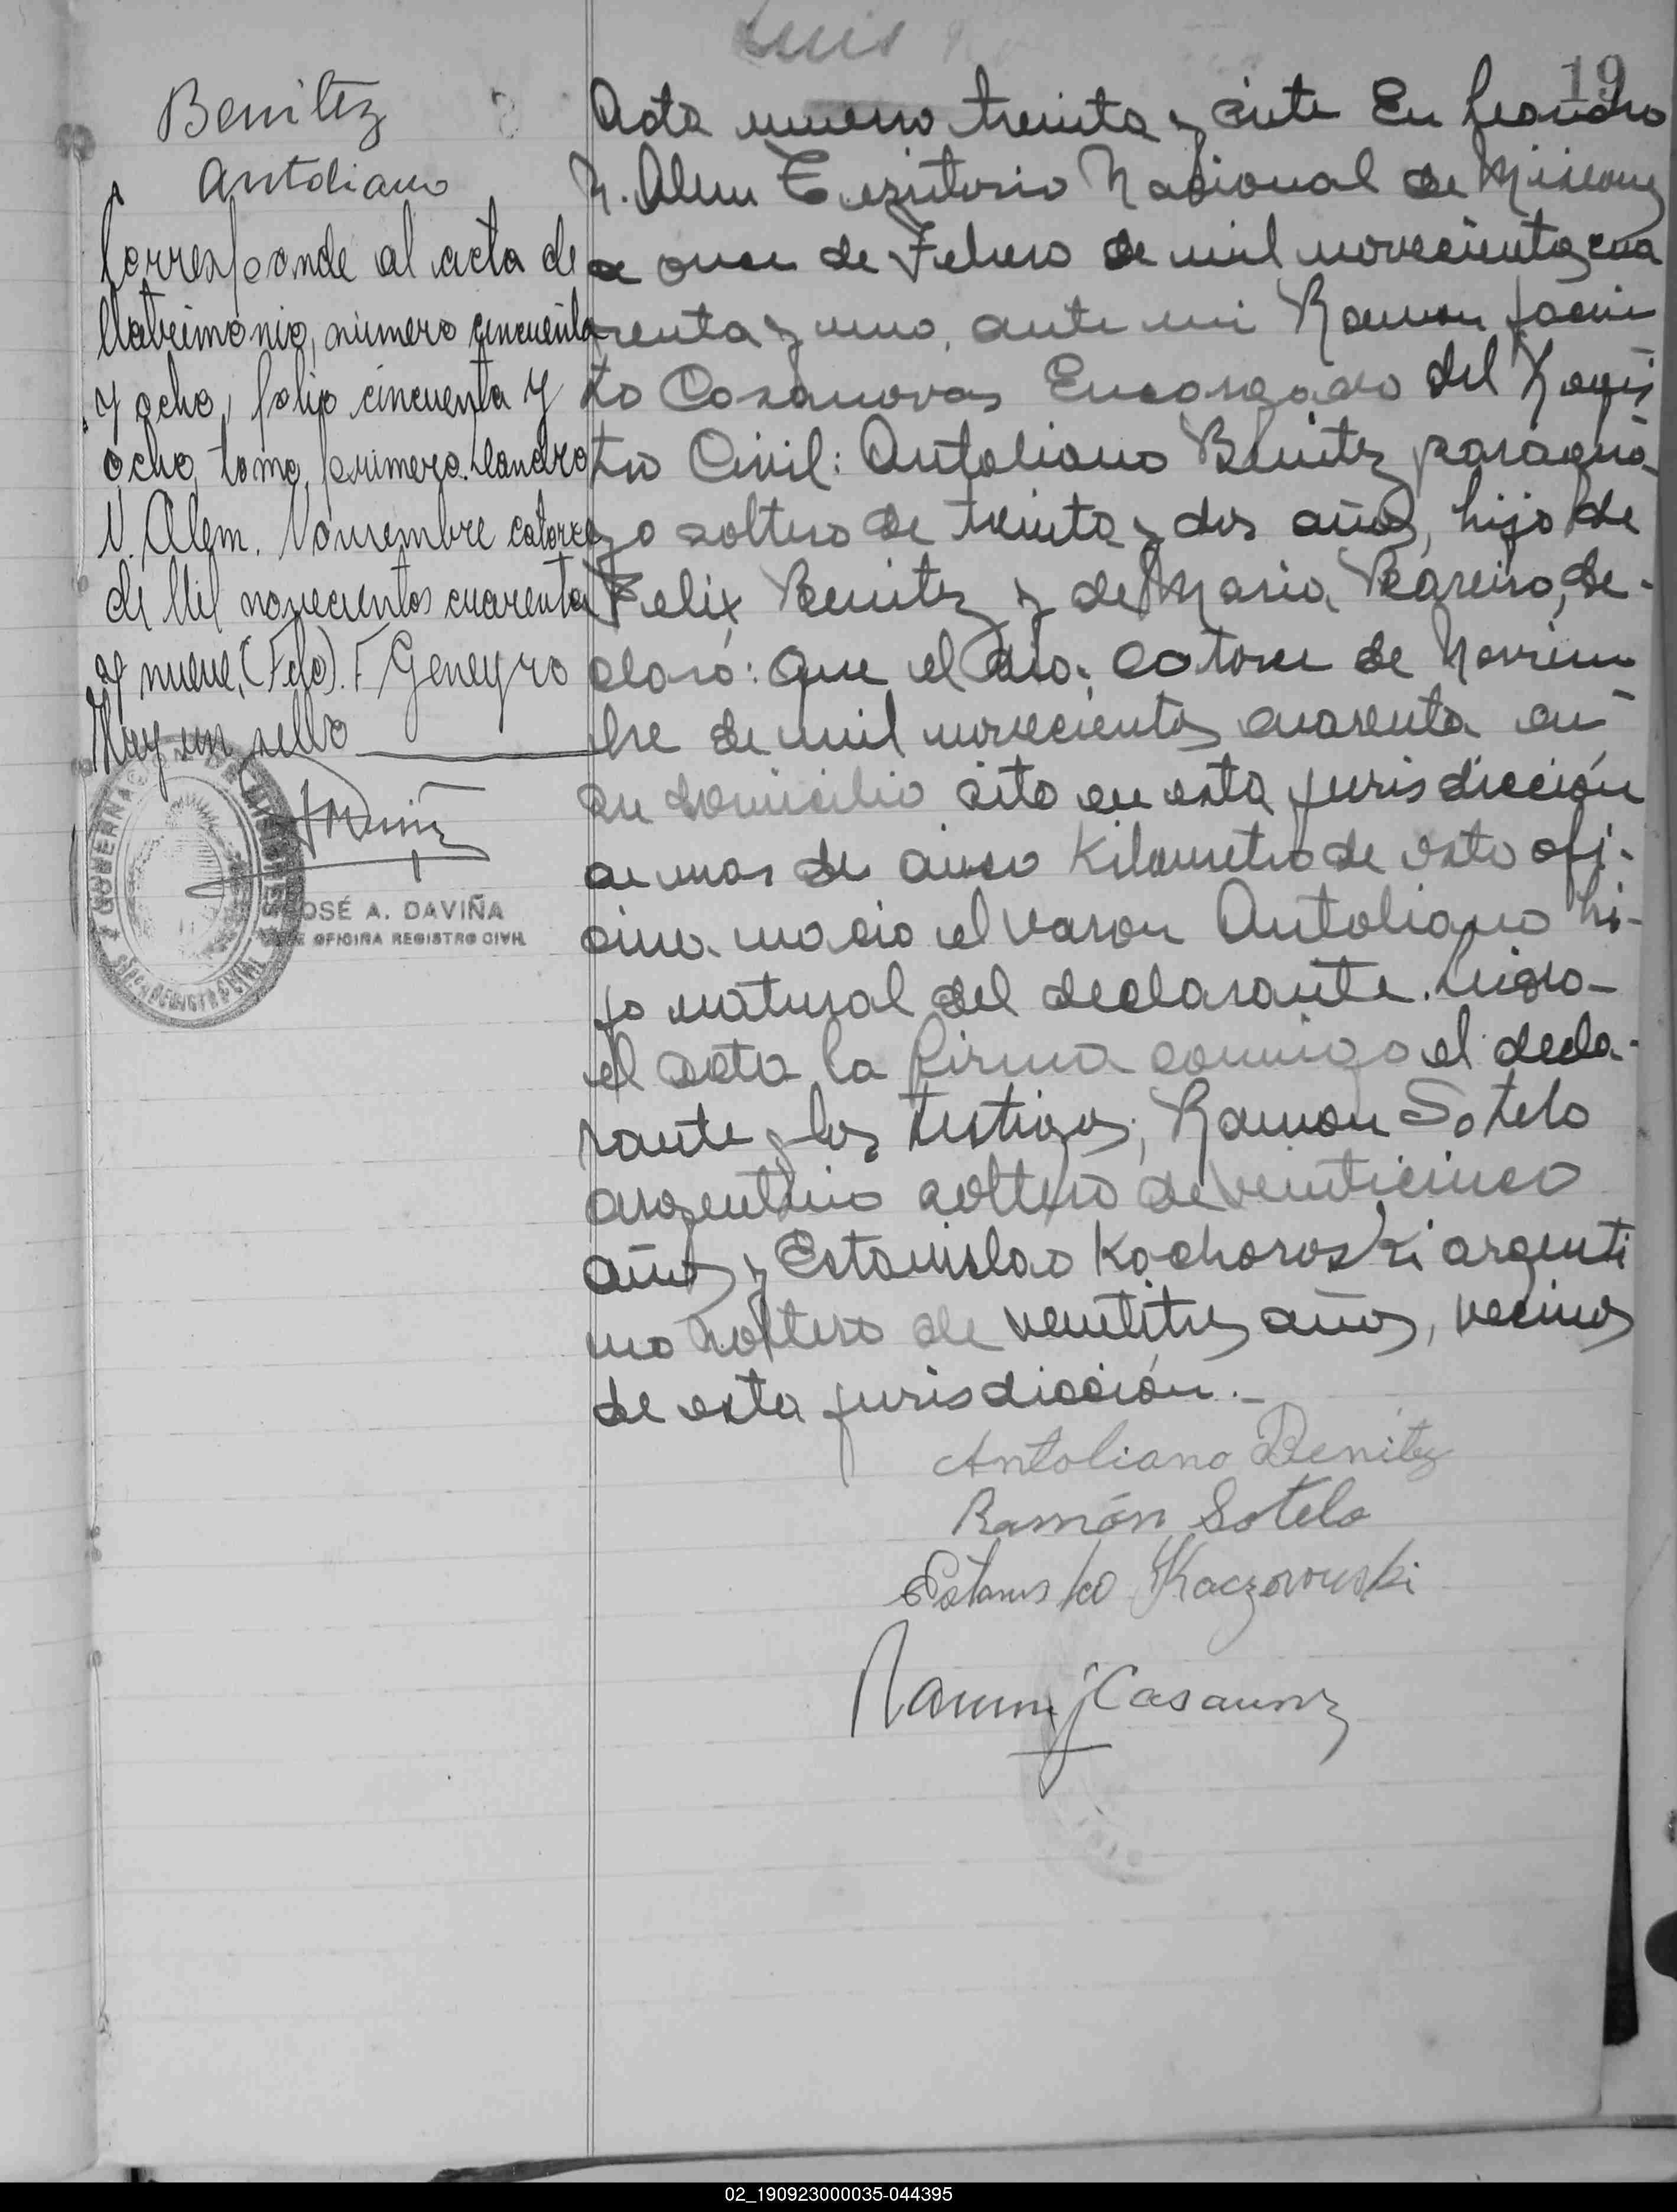 Luis
19
Benitez
Antoliano
Corresponde al acta de
Matrimonio, número cincuenta
y ocho, folio cincuenta y
ocho, tomo, primero. Leandro
N. Alem. Noviembre catorce
de Mil novecientos cuarenta
y nueve, (Fdo). F Geneyro
Hay un sello
GOBERNACION DE MISIONES
JOSÉ A. DAVIÑA
OFICINA REGISTRO CIVIL
Acta numero treinta y siete En Leandro
N. Alem Territorio Nacional de Misiones
a once de Febrero de mil novecientos cua
renta y uno, ante mi Ramon Jacin
to Casanovas Encargado del Regis
tro Civil: Antoliano Benitez paragua
yo soltero de treinta y dos años, hijo de
Felix Benitez y de Maria, de-
claró: Que el dia; catorce de Noviem
bre de mil novecientos cuarenta en
su domicilio sito en esta jurisdicción
a mas de cinco Kilometro de esta ofi-
cina nacio el varon Antoliano hi-
jo natural del declarante. Leida
el acta la firma conmigo el decla-
rante y los testigos; Ramon Sotelo
argentino soltero de veinticinco
años y Estanislao Kachoroski argenti
no soltero de ventitres años, vecinos
de esta jurisdicción.-
Antoliano Benitez
Ramón Sotelo
Estanislao Kaczorowski
Ramon J Casanovas
02_190923000035-044395